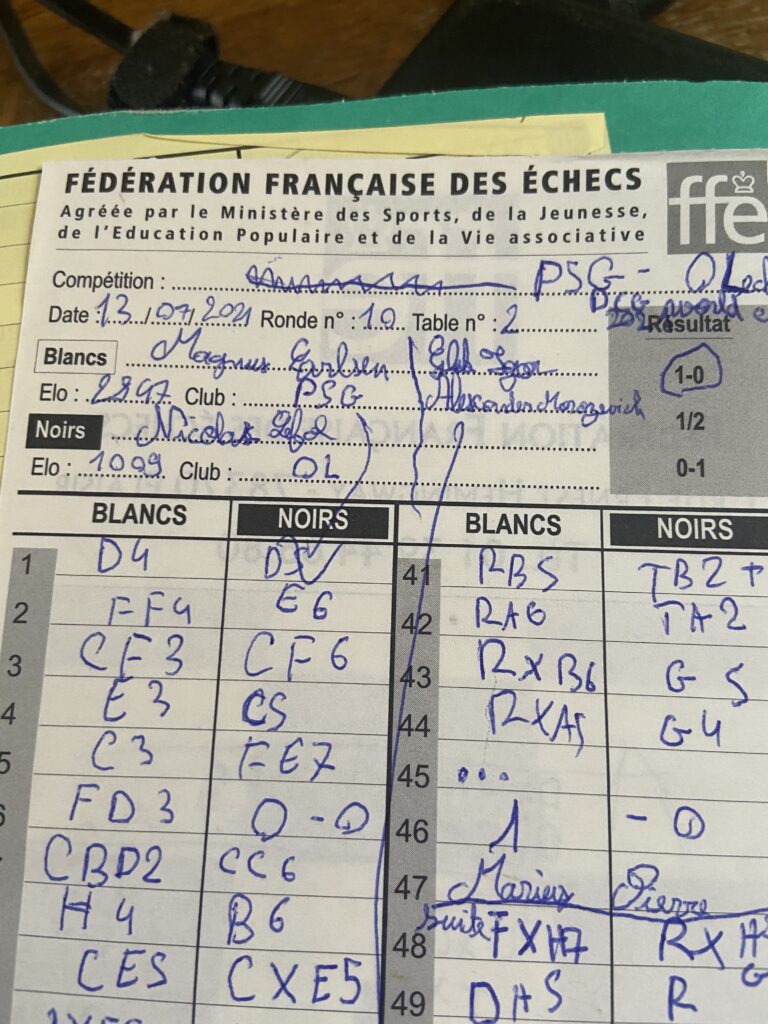 FÉDÉRATION FRANÇAISE DES ÉCHECS
Agréée par le Ministère des Sports, de la Jeunesse,
de l'Education Populaire et de la Vie associative
ffe
Compétition : PSG - OL
Date : 13/07/2021 Ronde n° : 10 Table n° : 2
Résultat
Blancs Magnus Carlsen
1-0
Elo : 2897 Club : PSG Alexander Morozevich
1/2
Noirs Nicolas
Elo : 1099 Club : OL
0-1
BLANCS NOIRS BLANCS NOIRS
1 D4 D5 41 RB5 TB2+
2 FF4 E6 42 RA6 TA2
3 CF3 CF6 43 RXB6 G5
4 E3 C5 44 RXA5 G4
5 C3 FE7 45 ...
6 FD3 O-O 46 1 - 0
CBD2 CC6 47 Marius Pierre
H4 B6 48 suite FXH7 RXH
CE5 CXE5 49 DH5 R